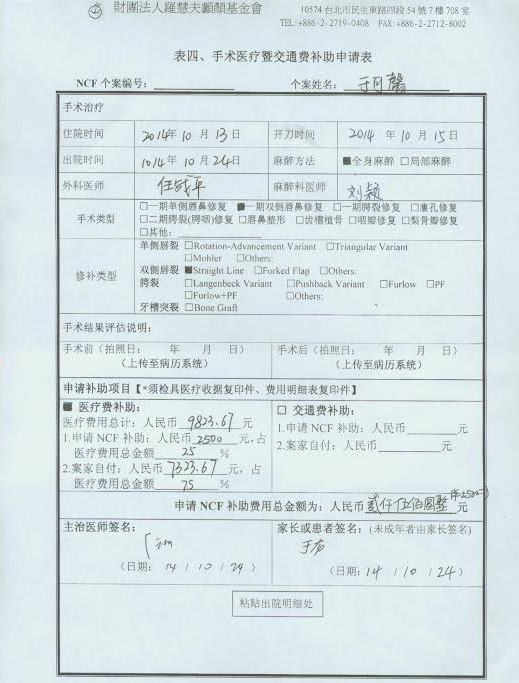 財團法人羅慧夫顱顏基金會
10574 台北市民生東路四段 54 號 7 樓 708 室
TEL:+886-2-2719-0408 FAX:+886-2-2712-8002
表四、手术医疗暨交通费补助申请表
NCF 个案编号： 个案姓名：于可馨
手术治疗
住院时间 2014年 10 月 13 日 开刀时间 2014 年 10 月 15 日
出院时间 1014 年 10 月 24 日 麻醉方法 ■全身麻醉 □局部麻醉
外科医师 任战平 麻醉科医师 刘颖
手术类型 □一期单侧唇鼻修复 ■一期双侧唇鼻修复 □一期腭裂修复 □瘘孔修复
□二期腭裂(腭咽)修复 □唇鼻整形 □齿槽植骨 □咽瓣修复 □梨骨瓣修复
□其他：
修补类型 单侧唇裂 □Rotation-Advancement Variant □Triangular Variant
□Mohler □Others:
双侧唇裂 ■Straight Line □Forked Flap □Others:
腭裂 □Langenbeck Variant □Pushback Variant □Furlow □PF
□Furlow+PF □Others:
牙槽突裂 □Bone Graft
手术结果评估说明：
手术前（拍照日： 年 月 日） 手术后（拍照日： 年 月 日）
（上传至病历系统） （上传至病历系统）
申请补助项目【*须检具医疗收据复印件、费用明细表复印件】
■ 医疗费补助： □ 交通费补助：
医疗费用总计：人民币 9823.67 元 1.申请 NCF 补助：人民币 元
1.申请 NCF 补助：人民币 2500 元，占 2.案家自付：人民币 元
医疗费用总金额 25 %
2.案家自付：人民币 7323.67 元，占
医疗费用总金额 75 %
申请 NCF 补助费用总金额为：人民币 贰仟伍佰圆整 元
主治医师签名： 家长或患者签名：(未成年者由家长签名)
（日期： 14 / 10 / 24 ） （日期： 14 / 10 / 24 ）
粘贴出院明细处